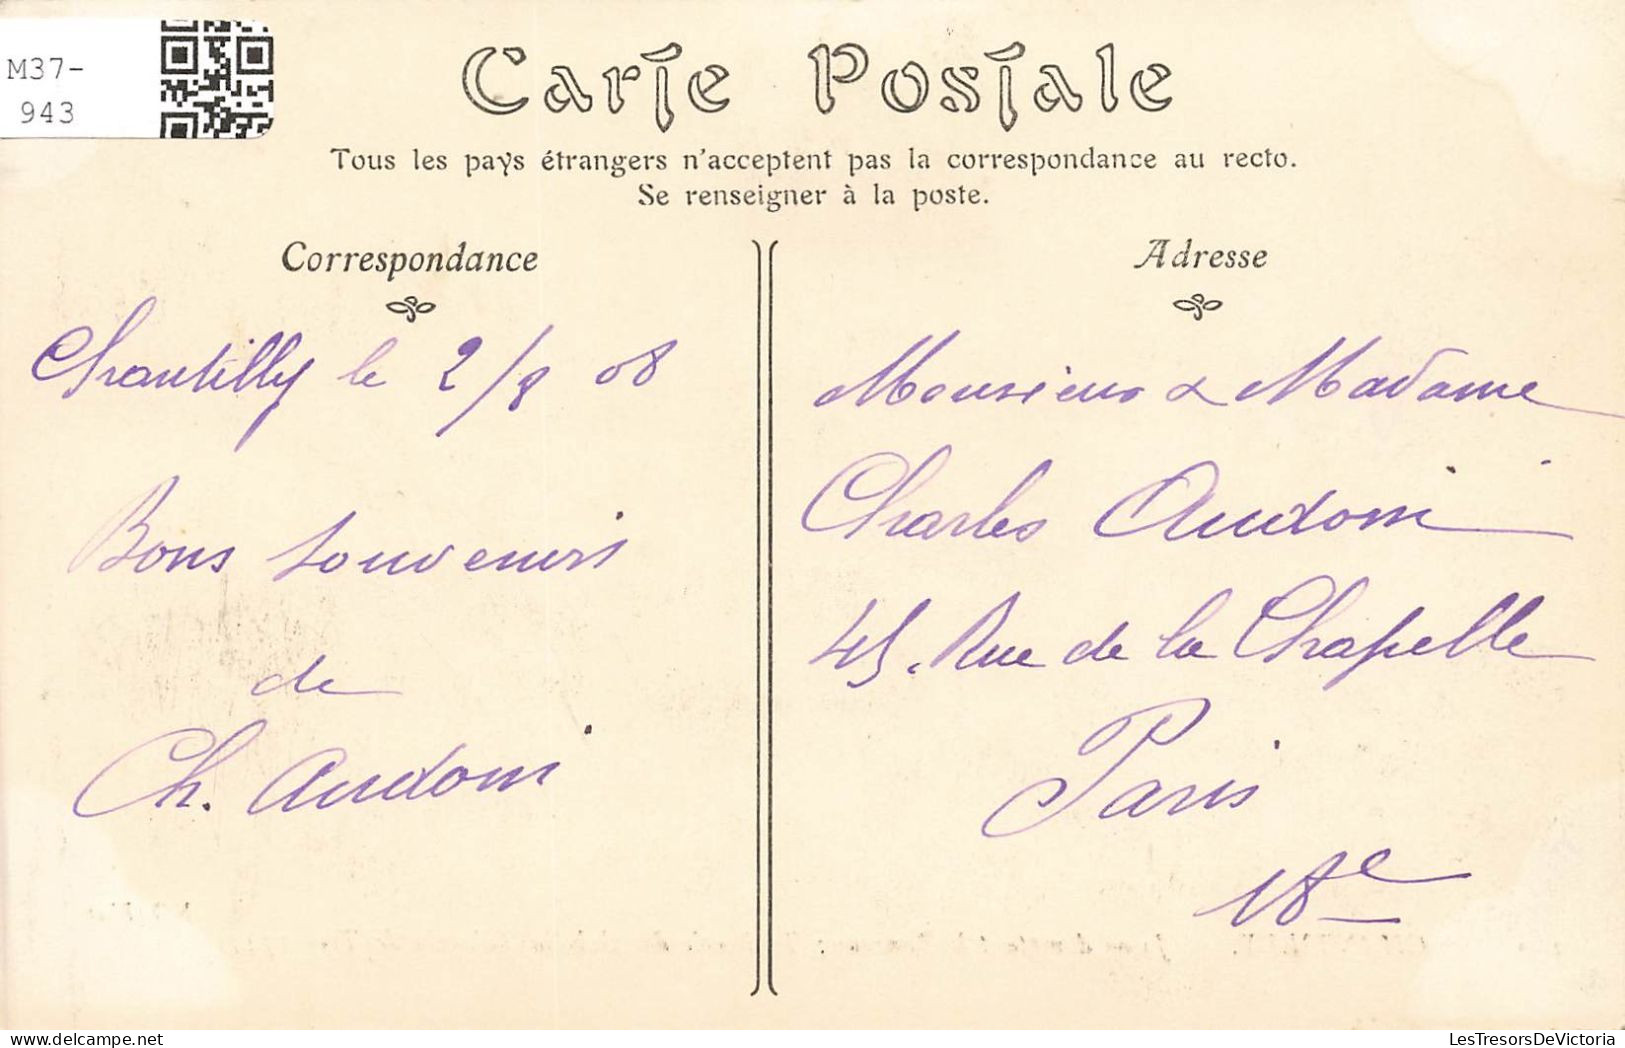 M37-
943
Carte Postale
Tous les pays étrangers n'acceptent pas la correspondance au recto.
Se renseigner à la poste.
Correspondance
Chantilly le 2/8 08
Bons souvenirs
de
Ch. Audoin
Adresse
Monsieur & Madame
Charles Audoin
45. Rue de la Chapelle
Paris
18e
LesTresorsDeVictoria